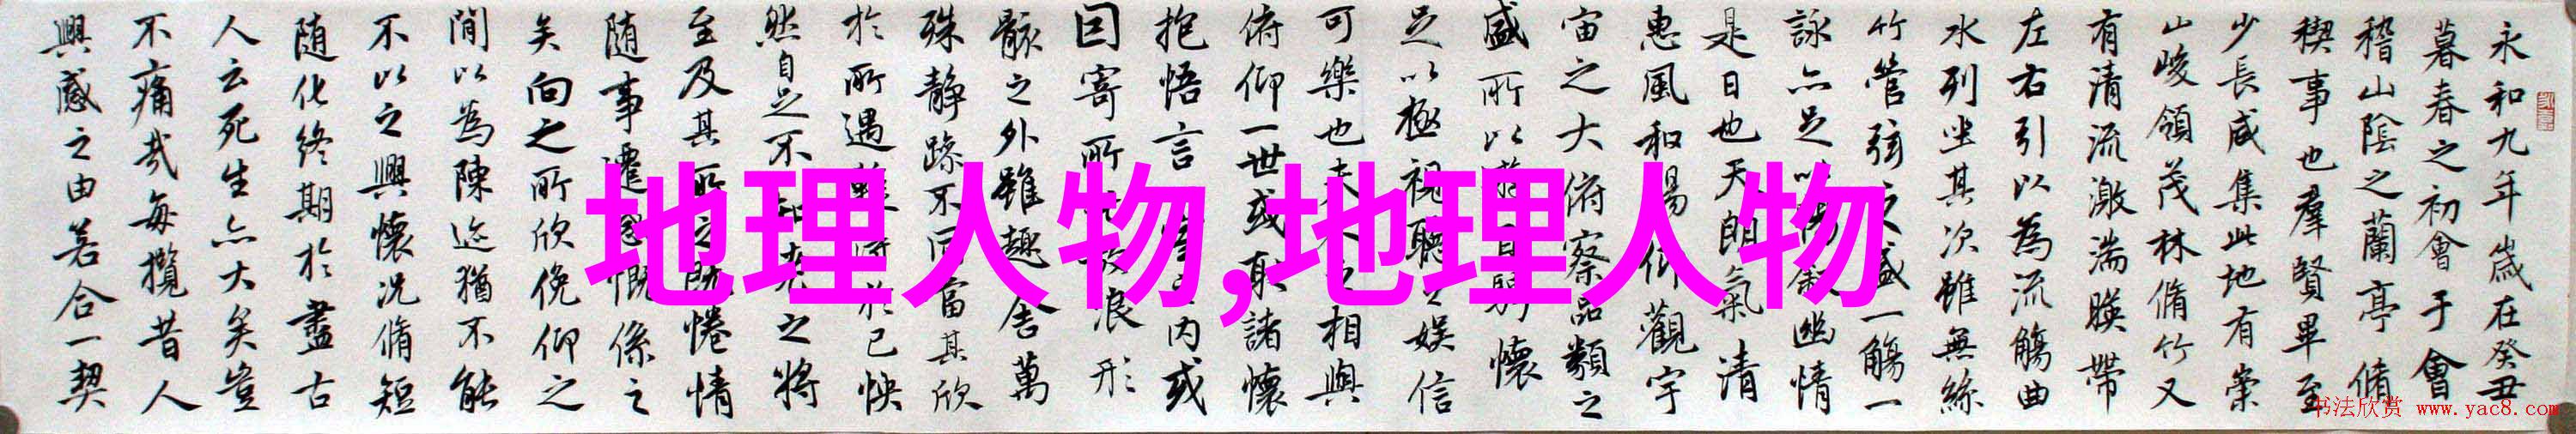 永和九年歲在癸丑
暮春之初會于會
稽山陰之蘭亭脩
稧事也羣賢畢至
少長咸集此地有崇
山峻領茂林脩竹又
有清流激湍暎帶
左右引以為流觴曲
水列坐其次雖無絲
竹管弦之盛一觴一
詠亦足幽情
是日也天朗氣清
惠風和暢仰觀宇
宙之大俯察品類之
盛所以懷
足以極視聽之娛信
可樂也夫相與
俯仰一世或取諸懷
抱悟言內或
因寄所浪形
骸之外雖趣舍萬
殊静躁不同當其欣
於所遇於己怏
然自足不之將
至及其所之既惓情
随事遷感慨係之
矣向之所欣俛仰之
閒以為陳迹猶不能
不以之興懷况脩短
随化終期於盡古
人云死生亦大矣豈
不痛哉每攬昔人
興感之由若合一契
地理人物,地理人物
书法欣赏 www.yac8.com